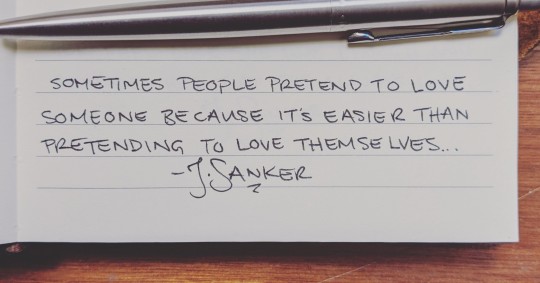 SOMETIMES PEOPLE PRETEND TO LOVE
SOMEONE BECAUSE IT'S EASIER THAN
PRETENDING TO LOVE THEMSELVES...
-J.SANKER